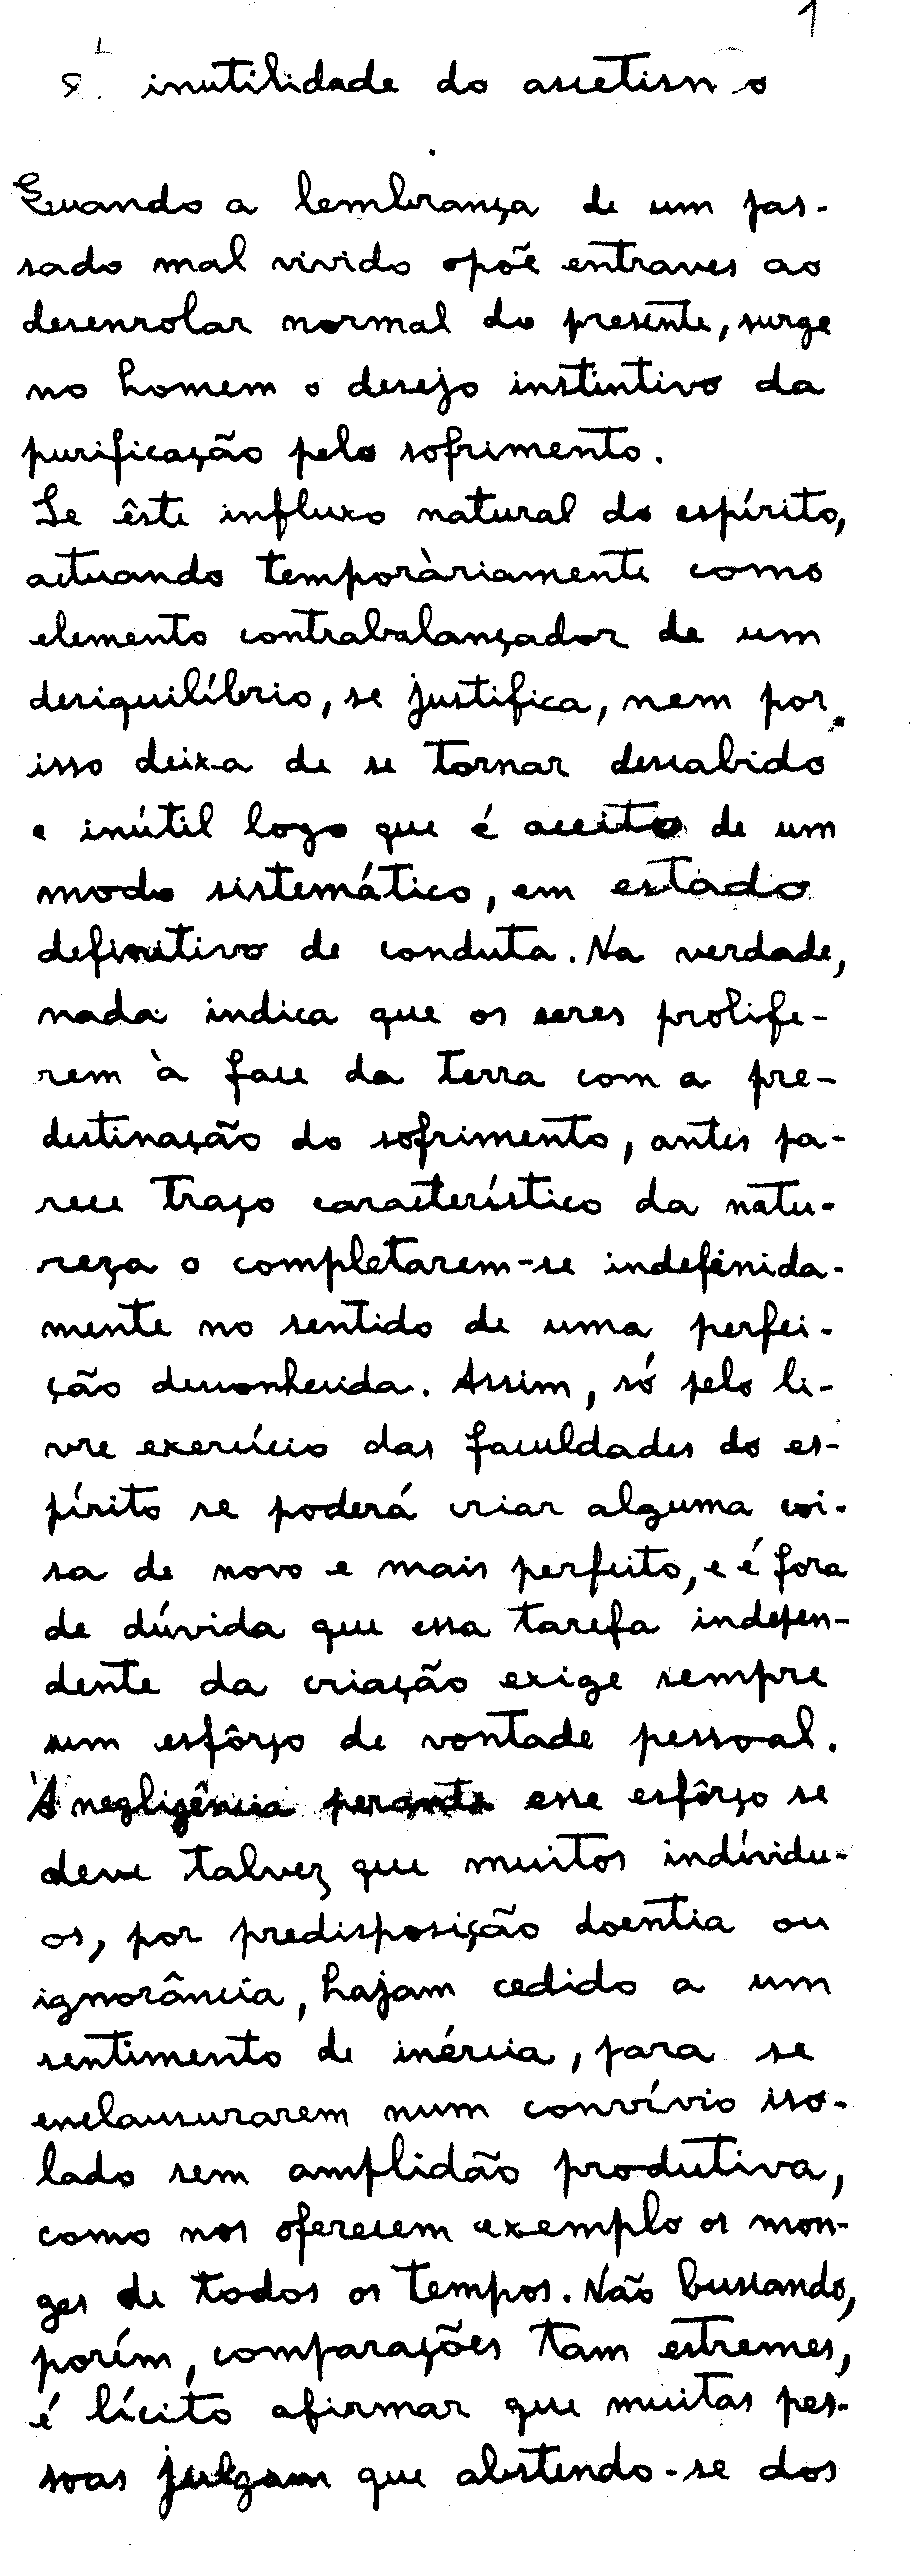 1
inutilidade do ascetismo
Quando a lembrança de um pas-
sado mal vivido opõe entraves ao
desenrolar normal do presente, surge
no homem o desejo instintivo da
purificação pelo sofrimento.
Se êste influxo natural do espírito,
actuando temporàriamente como
elemento contrabalançador de um
desiquilíbrio, se justifica, nem por
isso deixa de se tornar descabido
e inútil logo que é aceito de um
modo sistemático, em estado
definitivo de conduta. Na verdade,
nada indica que os seres prolife-
rem à face da terra com a pre-
destinação do sofrimento, antes pa-
rece traço característico da natu-
reza o completarem-se indefinida-
mente no sentido de uma perfei-
ção desconhecida. Assim, só pelo li-
vre exercício das faculdades do es-
pírito se poderá criar alguma coi-
sa de novo e mais perfeito, e é fora
de dúvida que essa tarefa indepen-
dente da criação exige sempre
um esfôrço de vontade pessoal.
À negligência perante esse esfôrço se
deve talvez que muitos indívidu-
os, por predisposição doentia ou
ignorância, hajam cedido a um
sentimento de inércia, para se
enclausurarem num convívio iso-
lado sem amplidão produtiva,
como nos oferecem exemplo os mon-
ges de todos os tempos. Não buscando,
porém, comparações tam estremes,
é lícito afirmar que muitas pes-
soas julgam que abstendo-se dos